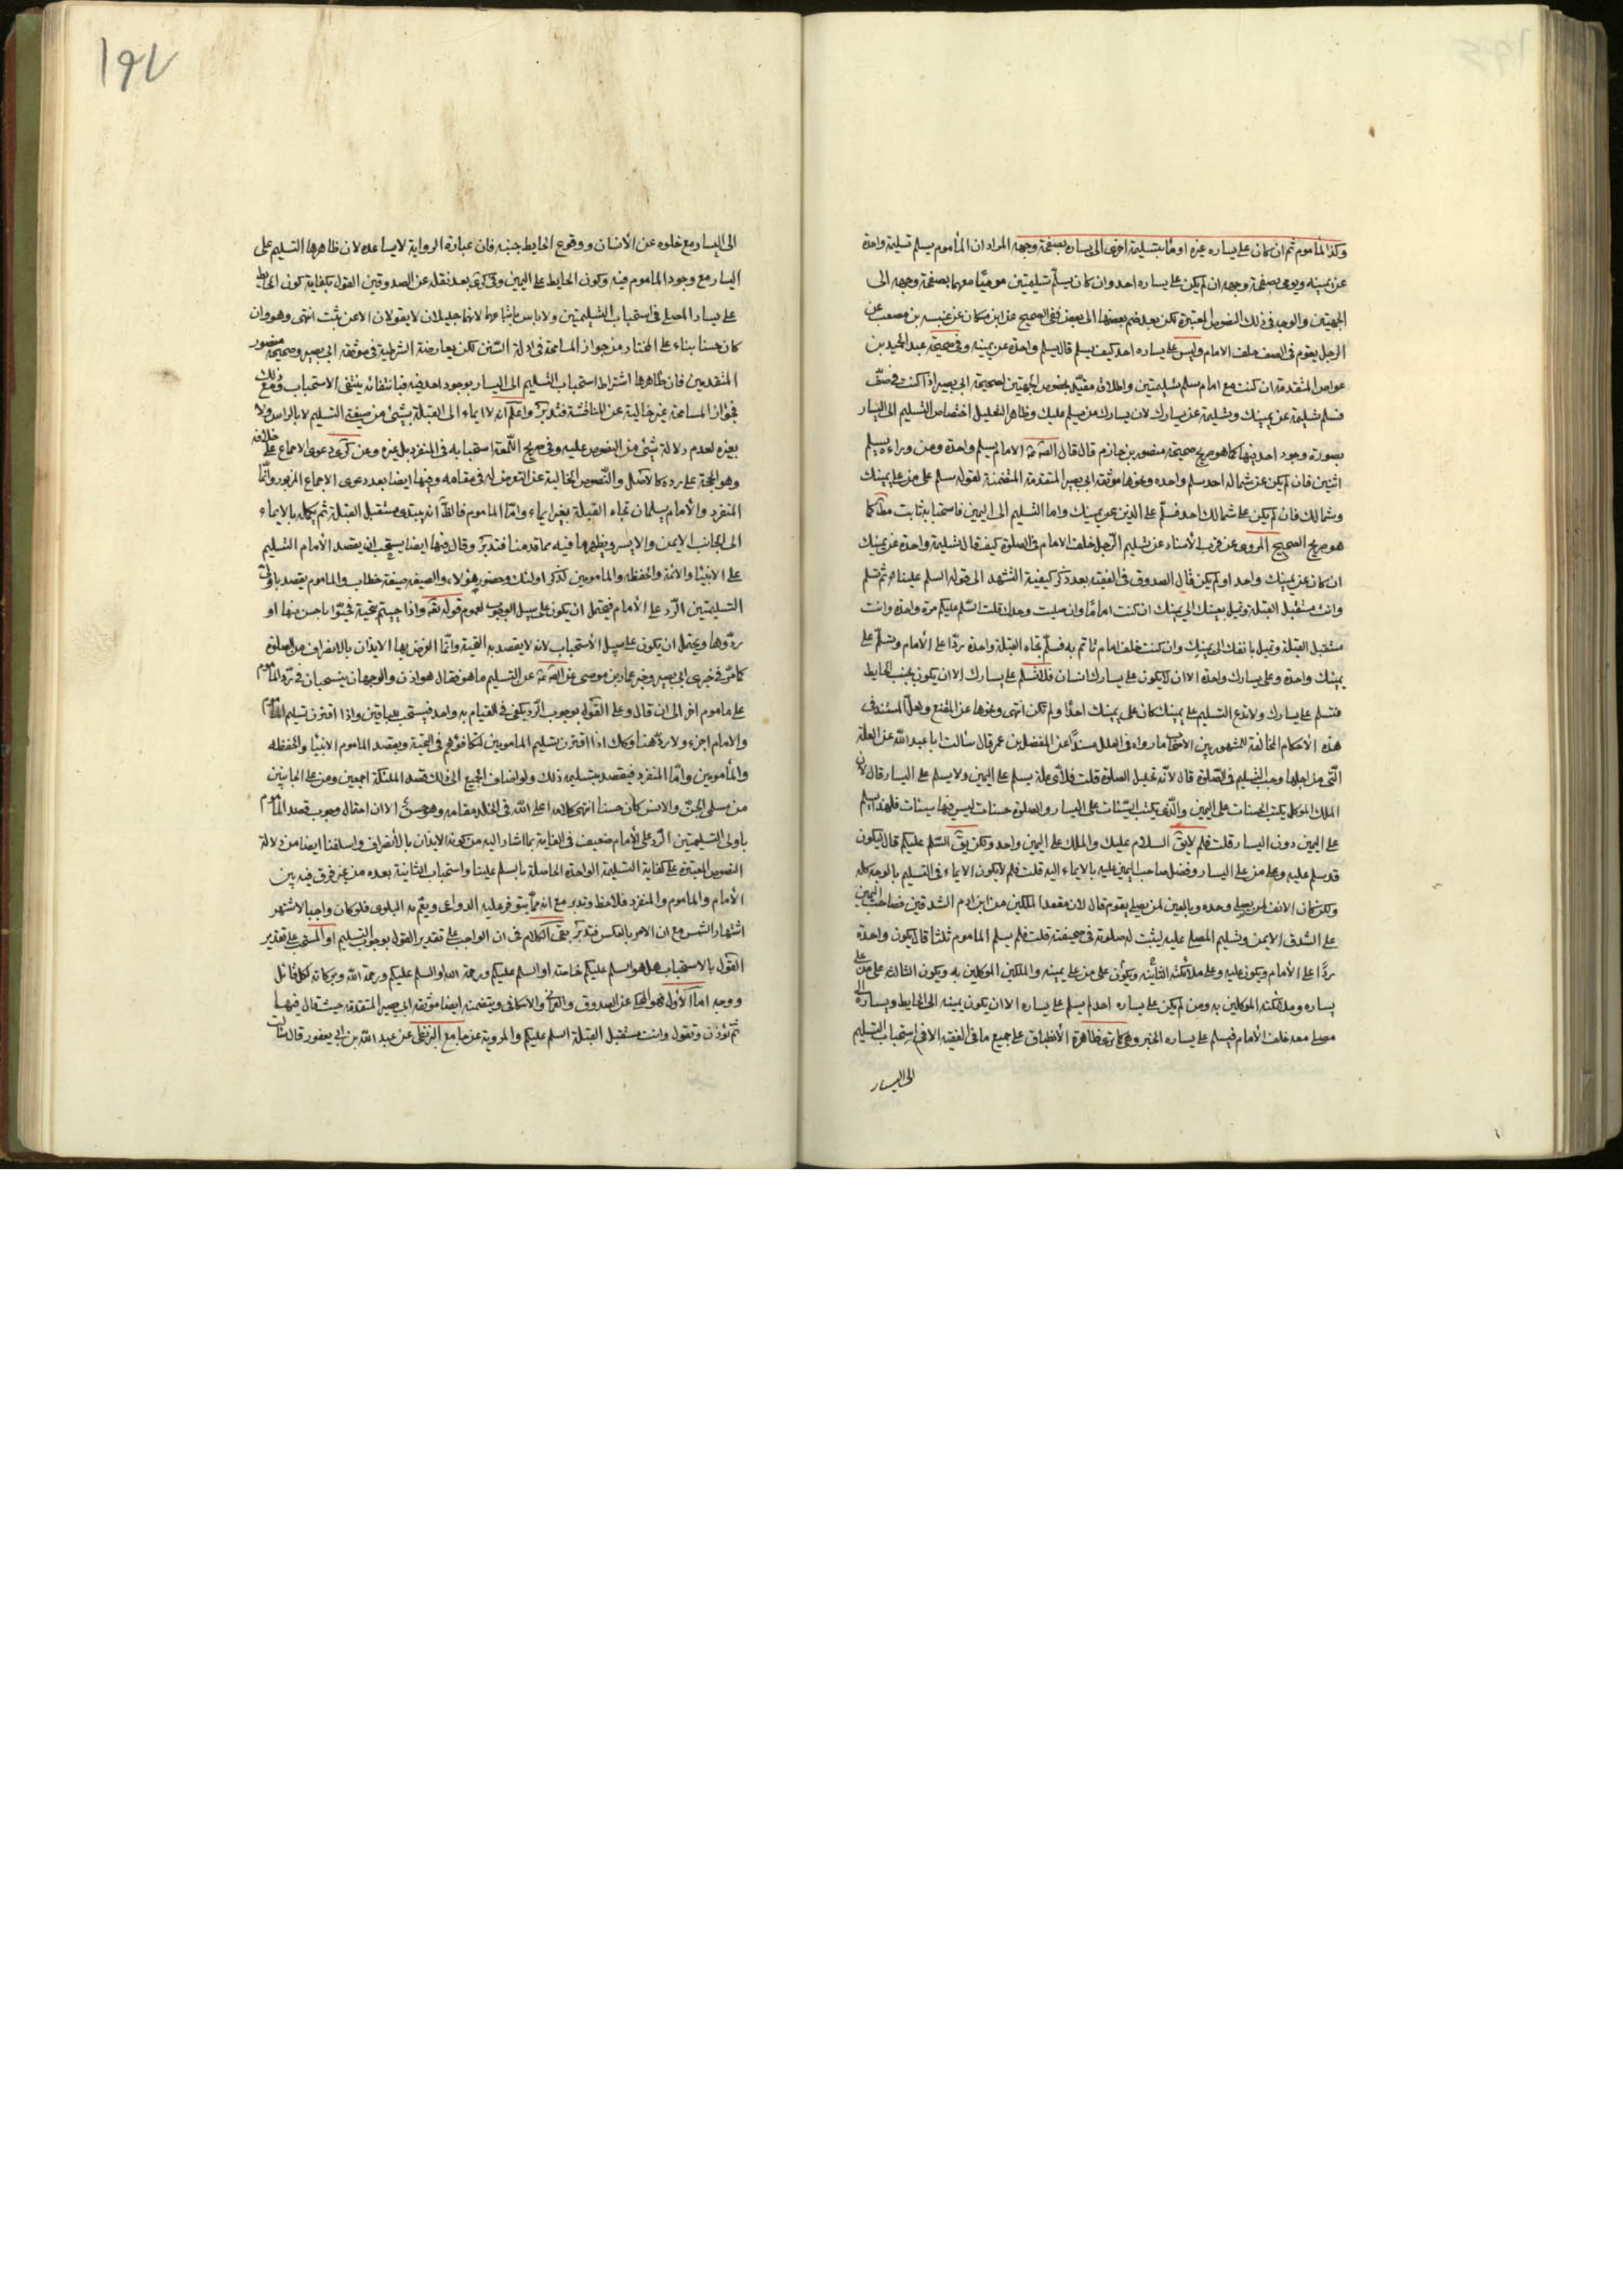 وكذا المأموم ثم ان كان على يساره غيره اومأ بتسليمة اخرى الى يساره بصفحة وجهه المراد ان المأموم يسلم تسليمة واحدة
عن يمينه ويومى بصفحة وجهه ان لم يكن على يساره احد وان كان يسلم تسليمتين موميًا معهما بصفحة وجهه الى
الجهتين والوجه فى ذلك النصوص المعتبرة لكن بعد ضم بعضها الى بعض ففى الصحيح عن ابن مسكان عن عنبسه بن مصعب عن
الرجل يقوم فى الصف خلف الامام وليس على يساره احد كيف يسلم قال يسلم واحدة عن يمينه وفى صحيحة عبد الحميد بن
عواض المتقدمة ان كنت مع امام سلم تسليمتين واطلاقه مقيّد بخصوص الجهتين لصحيحة ابى بصير اذا كنت فى صفّ
فسلم تسليمة عن يمينك وتسليمة عن يسارك لان يسارك من يسلم عليك وظاهر التعليل اختصاص التسليم الى اليسار
بصورة وجود احد فيها كما هو صريح صحيحة منصور بن حازم قال قال الامام يسلم واحدة ومن وراءه يسلم
اثنين فان لم يكن عن شماله احد سلم واحده ونحوها موثقه ابى بصير المتقدمة المتضمنة لقوله سلم على من على يمينك
وشمالك فان لم يكن على شمالك احد فسلّم على الذين عن يمينك واما التسليم الى اليمين فاستحبابه ثابت مطلقا كما
هو صريح الصحيح المروى عن قرب الأسناد عن تسليم الرّجل خلف الامام فى الصلوة كيف قال تسليمة واحدة عن يمينك
ان كان عن يمينك واحد او لم يكن قال الصدوق فى الفقيه بعد ذكر كيفية التشهد الى قوله السلم علينا ثم تسلم
وانت مستقبل القبلة وتميل بعينك الى يمينك ان كنت امامًا وان صليت وحدك قلت السّلم عليكم مرة واحدة وانت
مستقبل القبلة وتميل بانفك الى يمينك وان كنت خلف امام تاتم به فسلّم تجاه القبلة واحدة ردّا على الأمام وتسلّم على
يمينك واحدة وعلى يسارك واحدة الا ان لا يكون على يسارك انسان فلا تسلم على يسارك الا ان يكون بجنب الحايط
فتسلم على يسارك ولا تدع التسليم على يمينك كان على يمينك احدًا ولم تكن انتهى ونحوها عن المقنع ولعلّ المستند فى
هذه الأحكام المخالفة للمشهور بين الاصحاب ما رواه فى العلل مسندًا عن المفضل بن عمر قال سالت ابا عبد الله عن العلة
التّى من اجلها وجب التّسليم فى الصّلوة قال لانّه تحليل الصلوة قلت فلأى علة يسلم على اليمين ولا يسلم على اليسار قال لان
الملك الموكل يكتب الحسنات على اليمين والّذى يكتب السّيئات على اليسار والصلوة حسنات ليس فيها سيئات فلهذا يسلم
على اليمين دون اليسار قلت فلم لا يق السلام عليك والملك على اليمين واحد ولكن يق السّلم عليكم قال ليكون
قد سلم عليه وعلى من على اليسار وفضل صاحب اليمين عليه بالايماء اليه قلت فلم لا يكون الايماء فى التسليم بالوجه كله
ولكن كان الانف لمن يصلى وحده وبالعين لمن يصلى بقوم قال لان مقعد الملكين من ابن ادم الشدقين فصاحب اليمين
على الشدق الايمن وتسليم المصلى عليه ليثبت له صلوته فى صحيفته قلت فلم يسلم الماموم ثلثا قال يكون واحدة
ردًّا على الأمام ويكون عليه وعلى ملائكته الثّانية ويكون على من على يمينه والملكين الموكلين به ويكون الثالثة على من على
يساره وملائكته الموكلين به ومن لم يكن على يساره احد لم يسلم على يساره الا ان يكون يمينه الى الحايط ويساره الى
مصلى معه خلف الأمام فيسلم على يساره الخبر وهى كما ترى ظاهرة الأنطباق على جميع ما فى الفقيه الا فى استحباب التسليم
الى اليسار
١٩٧
الى اليسار مع خلوه عن الأنسان ووقوع الحايط جنبه فان عبارة الرواية لا يساعده لان ظاهرها التسليم على
اليسار مع وجود الماموم فيه وكون الحايط على اليمين وفى كرى بعد نقله عن الصدوقين القول بكفاية كون الحايط
على يسار المصلى فى استحباب التسليمتين ولا باس باتباعهما لانهما جليلان لا يقولان الا عن ثبت انتهى وهو وان
كان حسنا بناء على المختار من جواز المسامحة فى ادلة السّنن لكن يعارضه الشرطية فى موثقه ابى بصير وصحيحة منصور
المتقدمين فان ظاهرها اشتراط استحباب التسليم الى اليسار بوجود احد فيه فبانتفائه ينتفى الاستحباب ومع ذلك
فجواز المسامحة غير خالية عن المناقشة فتدبّر واعلم ان لا ايماء الى القبلة بشئ من صيغتى التسليم لا بالراس ولا
بغيره لعدم دلالة شئ من النصوص عليه وفى صريح اللّمعة استحبابه فى المنفرد بل غيره وعن كرى دعوى الاجماع على خلافه
وهو الحجة على رده كالاصل والنّصوص الخالية عن التعرض له فى مقامه وفيها ايضا بعد دعوى الاجماع المزبور وانّما
المنفرد والأمام يسلمان تجاه القبلة بغير ايماء وامّا الماموم فالظّ انه يبتدى مستقبل القبلة ثم يكمله بالايماء
الى الجانب الايمن والايسر ويظهر ما فيه مما قدمنا فتدبّر وقال فيها ايضا يستحب ان يقصد الأمام التسليم
على الانبيا والائمة والحفظه والمامومين لذكر اولئك وحضور هؤلاء والصيغه صيغة خطاب والماموم يقصد باولى
التسليمتين الرّد على الأمام فيحتمل ان يكون على سبيل الوجوب لعموم قوله تعه واذا حييتم بتحية فحيّوا باحسن منها او
ردّوها ويحتمل ان يكون على سبيل الأستحباب لانه لا يقصد به التحية وانّما الغرض بها الايذان بالانصراف من الصلوة
كما مرّ فى خبرى ابى بصير وخبر عمار بن موسى عن التسليم ما هو فقال هو اذن والوجهان ينسحبان فى ردّ المأموم
على ماموم اخر الى ان قال وعلى القول بوجوب الرّد يكفى فى القيام به واحد فيستحب للباقين واذا اقترن تسليم المأموم
والامام اجزء ولا ردّ هنا وكك اذا اقترن تسليم المامومين لتكافؤهم فى التحية ويقصد الماموم الانبيا والحفظه
والمأمومين وامّا المنفرد فيقصد بتسليمه ذلك ولو اضاف الجميع الى ذلك قصد الملئكة اجمعين ومن على الجانبين
من مسلمى الجنّ والانس كان حسنا انتهى كلامه اعلى الله فى الخلد مقامه وهو حسن الا ان احتمال وجوب قصد المأموم
باولى التسليمتين الرّد على الأمام ضعيف فى الغاية بما اشار اليه من كونه الايذان بالأنصراف واسلفنا ايضا من دلالة
النصوص المعتبرة على كفاية التسليمة الواحدة الحاصلة بالسلم علينا واستحباب الثانية بعده من غير فرق فيه بين
الأمام والماموم والمنفرد فلاحظ وتدبر مع انه ممّا يتوفر عليه الدواعى ويعّم به البلوى فلو كان واجبا لاشتهر
اشتهار الشمس مع ان الامر بالعكس فتدبّر بقى الكلام فى ان الواجب على تقدير القول بوجوب التسليم او المستحب على تقدير
القول بالاستحباب هل هو السلم عليكم خاصة او السلم عليكم ورحمة الله او السلم عليكم ورحمة الله وبركاته لكل قائل
ووجه اما الأول فهو المحكى عن الصدوق والعمانى والاسكافى ويتضمنه ايضا موثقه ابى بصير المتقدمة حيث قال فيها
ثم تؤذن وتقول وانت مستقبل القبلة السلم عليكم والمروية عن جامع البزنطى عن عبد الله بن ابى يعفور قال سالت